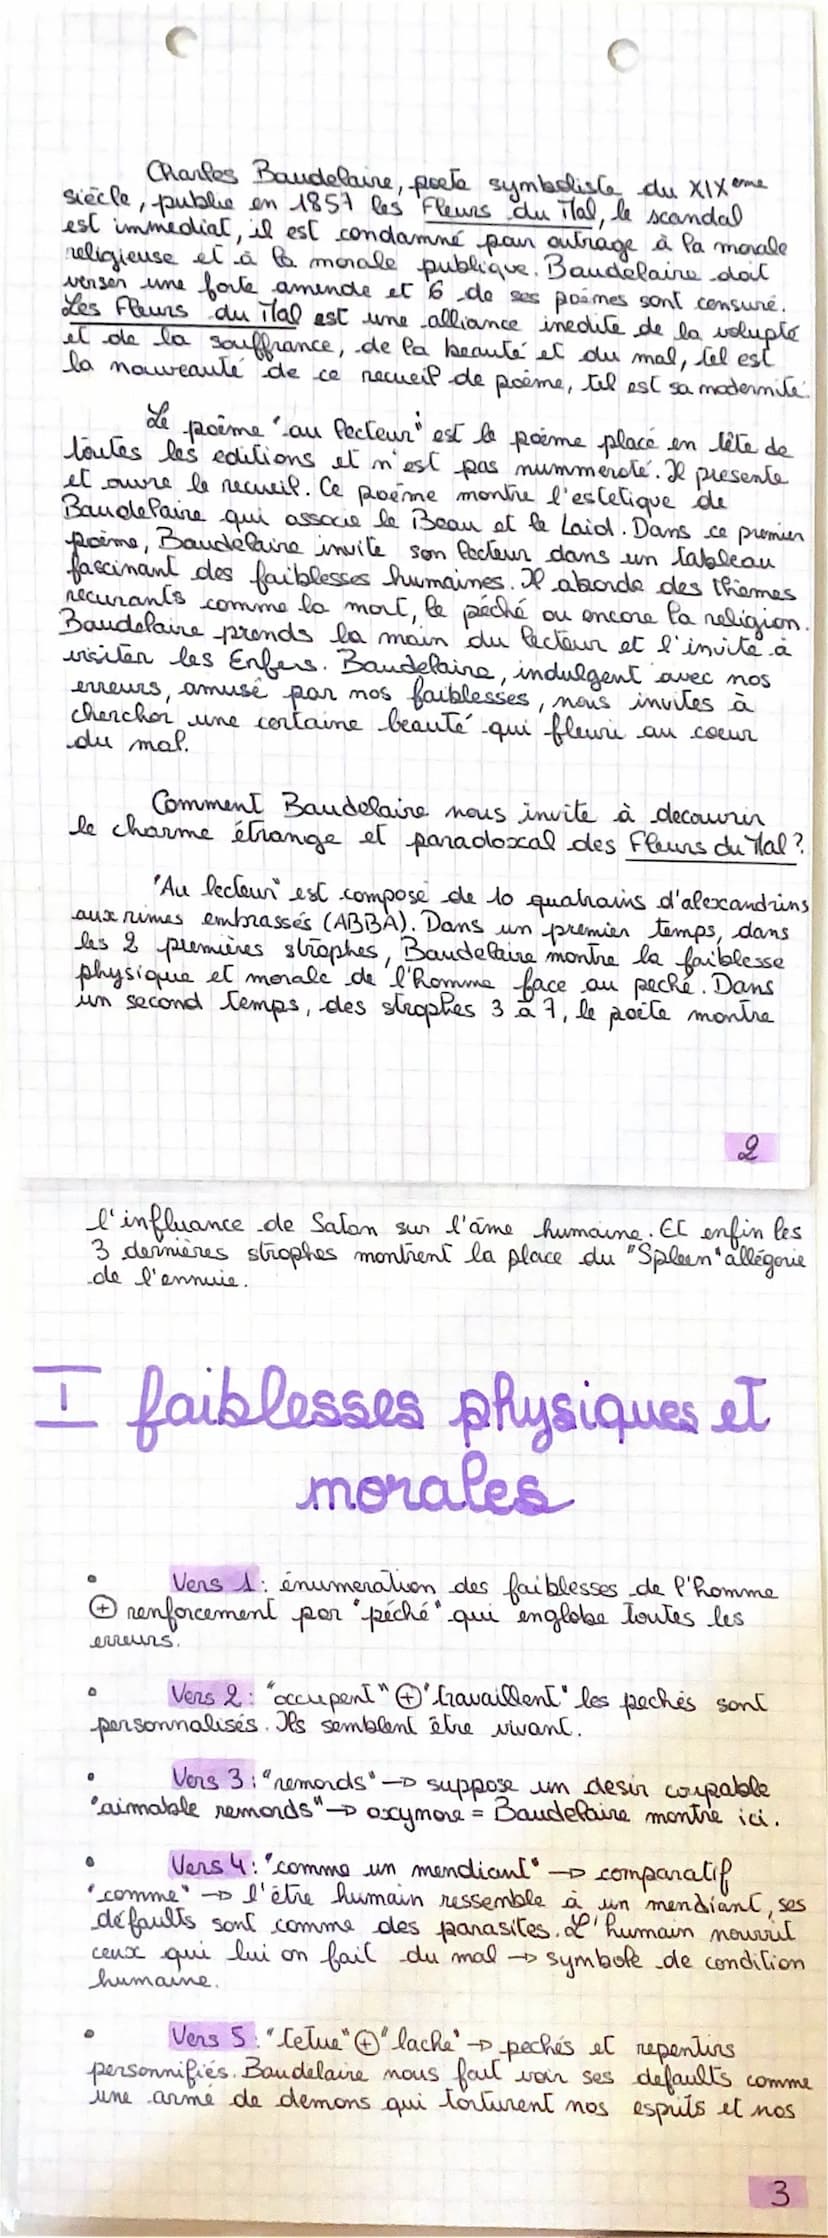 Charles Baudelaire, poète symboliste du XIXeme
siècle, publie en 1857 les Fleurs du Mal, le scandal
est immediat, il est condamné pour outrage à la morale
religieuse et à la morale publique. Baudelaire doit
verser une forte amende et 6 de ses poèmes sont censuré.
Les Fleurs du Mal est une alliance inedite de la volupté
et de la souffrance, de la beauté et du mal, tel est
la nouveauté de ce recueil de poème, tel est sa modernité.
Le poème "au lecteur" est le poème placé en tête de
toutes les editions et n'est pas nummeroté. Il presente
et ouvre le recueil. Ce poème montre l'estetique de
Baudelaire qui associe le Beau et le Laid. Dans ce premier
poème, Baudelaire invite son lecteur dans un tableau
fascinant des faiblesses humaines. Il aborde des thèmes
recurants comme la mort, le péché ou encore la religion.
Baudelaire prends la main du lecteur et l'invite à
visiter les Enfers. Baudelaire, indulgent avec nos
erreurs, amusé par nos faiblesses, nous invites à
chercher une certaine beauté qui fleuri au coeur
du mal.
Comment Baudelaire nous invite à decouvrir
le charme étrange et paradoxal des Fleurs du Mal ?
"Au lecteur" est composé de 10 quatrains d'alexandrins
aux rimes embrassés (ABBA). Dans un premier temps, dans
les 2 premières strophes, Baudelaire montre la faiblesse
physique et morale de l'homme face au peché. Dans
un second temps, des strophes 3 à 7, le poète montre
2
l'influance de Satan sur l'âme humaine. Et enfin les
3 dernières strophes montrent la place du "Spleen" allégorie
de l'ennuie.
I faiblesses physiques et
morales
• Vers 1 : énumeration des faiblesses de l'homme
⊕ renforcement par "péché" qui englobe toutes les
erreurs.
• Vers 2 : "occupent" ⊕ "travaillent" les pechés sont
personnalisés. Ils semblent être vivant.
• Vers 3 : "remords" → suppose un desir coupable
"aimable remords" → oxymore = Baudelaire montre ici.
• Vers 4 : "comme un mendiant" → comparatif
"comme" → l'être humain ressemble à un mendiant, ses
défaults sont comme des parasites. L'humain nourrit
ceux qui lui on fait du mal → symbole de condition
humaine.
• Vers 5 : "tetue" ⊕ "lache" → pechés et repentirs
personnifiés. Baudelaire nous fait voir ses defaults comme
une armé de demons qui torturent nos esprits et nos
3